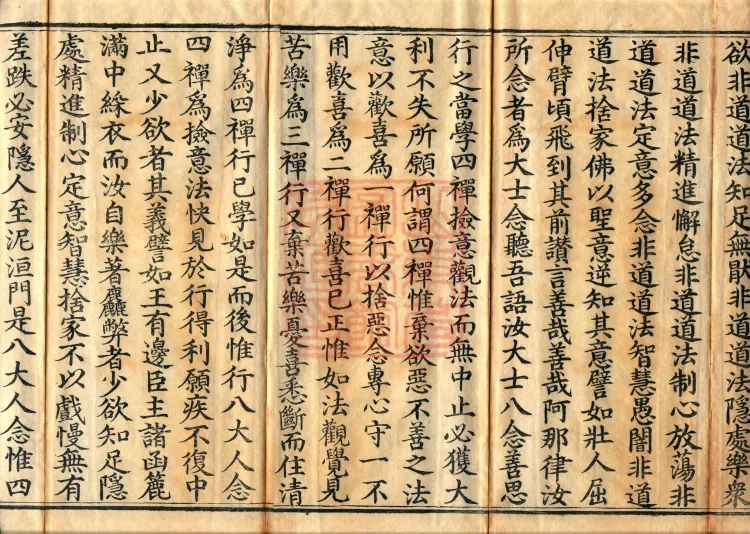 欲非道道法知足無猒非道道法隱處樂衆
非道道法精進懈怠非道道法制心放蕩非
道道法定意多念非道道法智慧愚闇非道
道法捨家佛以聖意逆知其意譬如壯人屈
伸臂頃飛到其前讚言善哉善哉阿那律汝
所念者爲大士念聽吾語汝大士八念善思
行之當學四禪撿意觀法而無中止必獲大
利不失所願何謂四禪惟棄欲惡不善之法
意以歡喜爲一禪行以捨惡念專心守一不
用歡喜爲二禪行歡喜已正惟如法觀覺見
苦樂爲三禪行又棄苦樂憂喜悉斷而住清
淨爲四禪行已學如是而後惟行八大人念
四禪爲撿意法快見於行得利願疾不復中
止又少欲者其義譬如王有邊臣主諸函簏
滿中綵衣而汝自樂著麤弊者少欲知足隱
處精進制心定意智慧捨家不以戲慢無有
差跌必安隱人至泥洹門是八大人念惟四